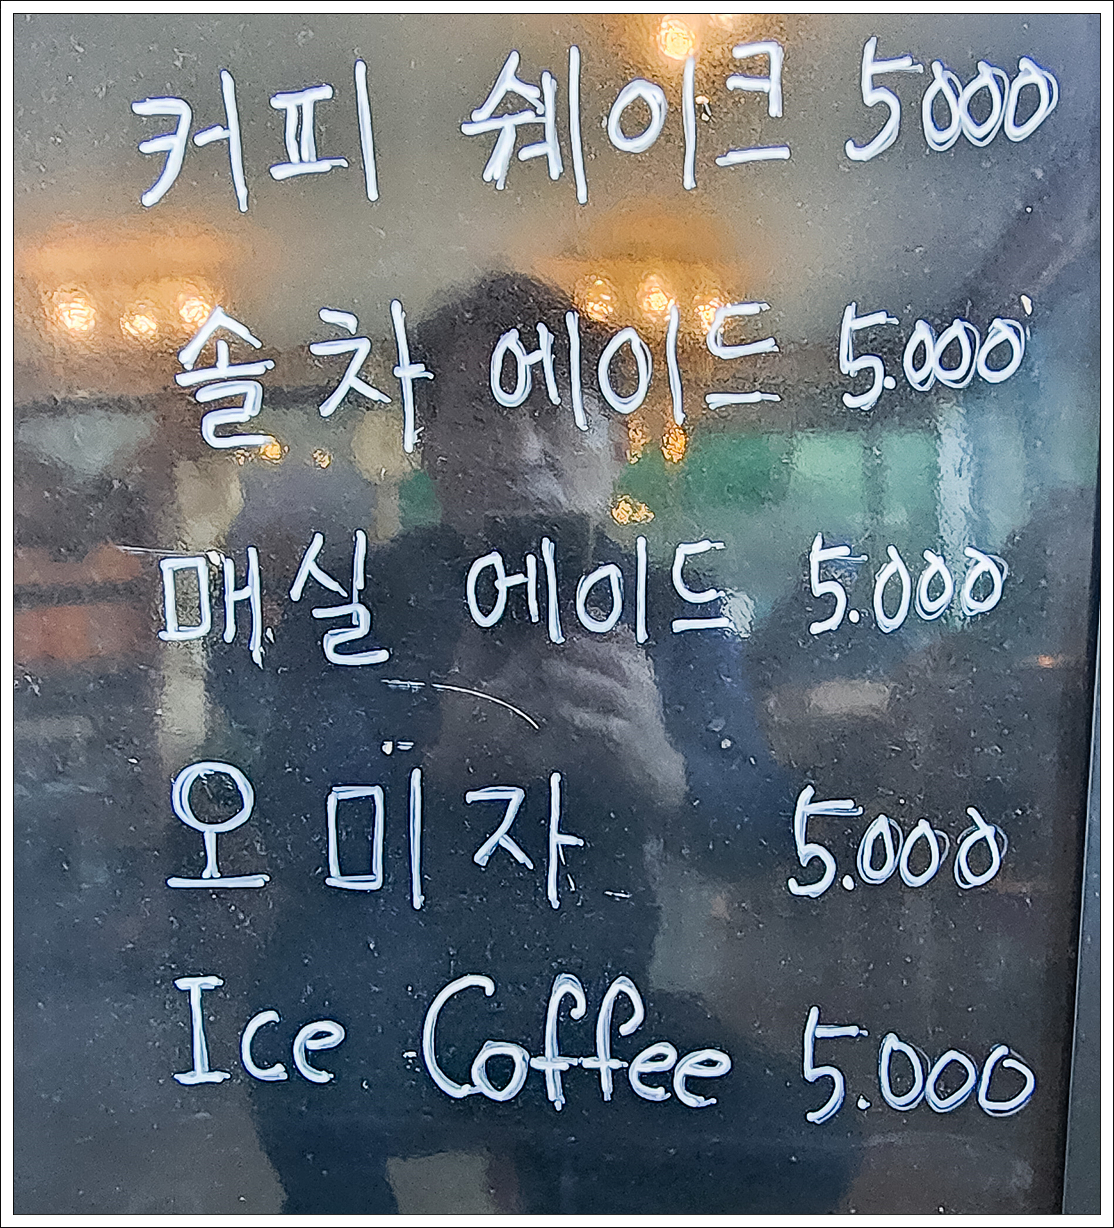 커피 쉐이크 5000
솔차 에이드 5.000
매실 에이드 5.000
오미자 5.000
Ice Coffee 5.000